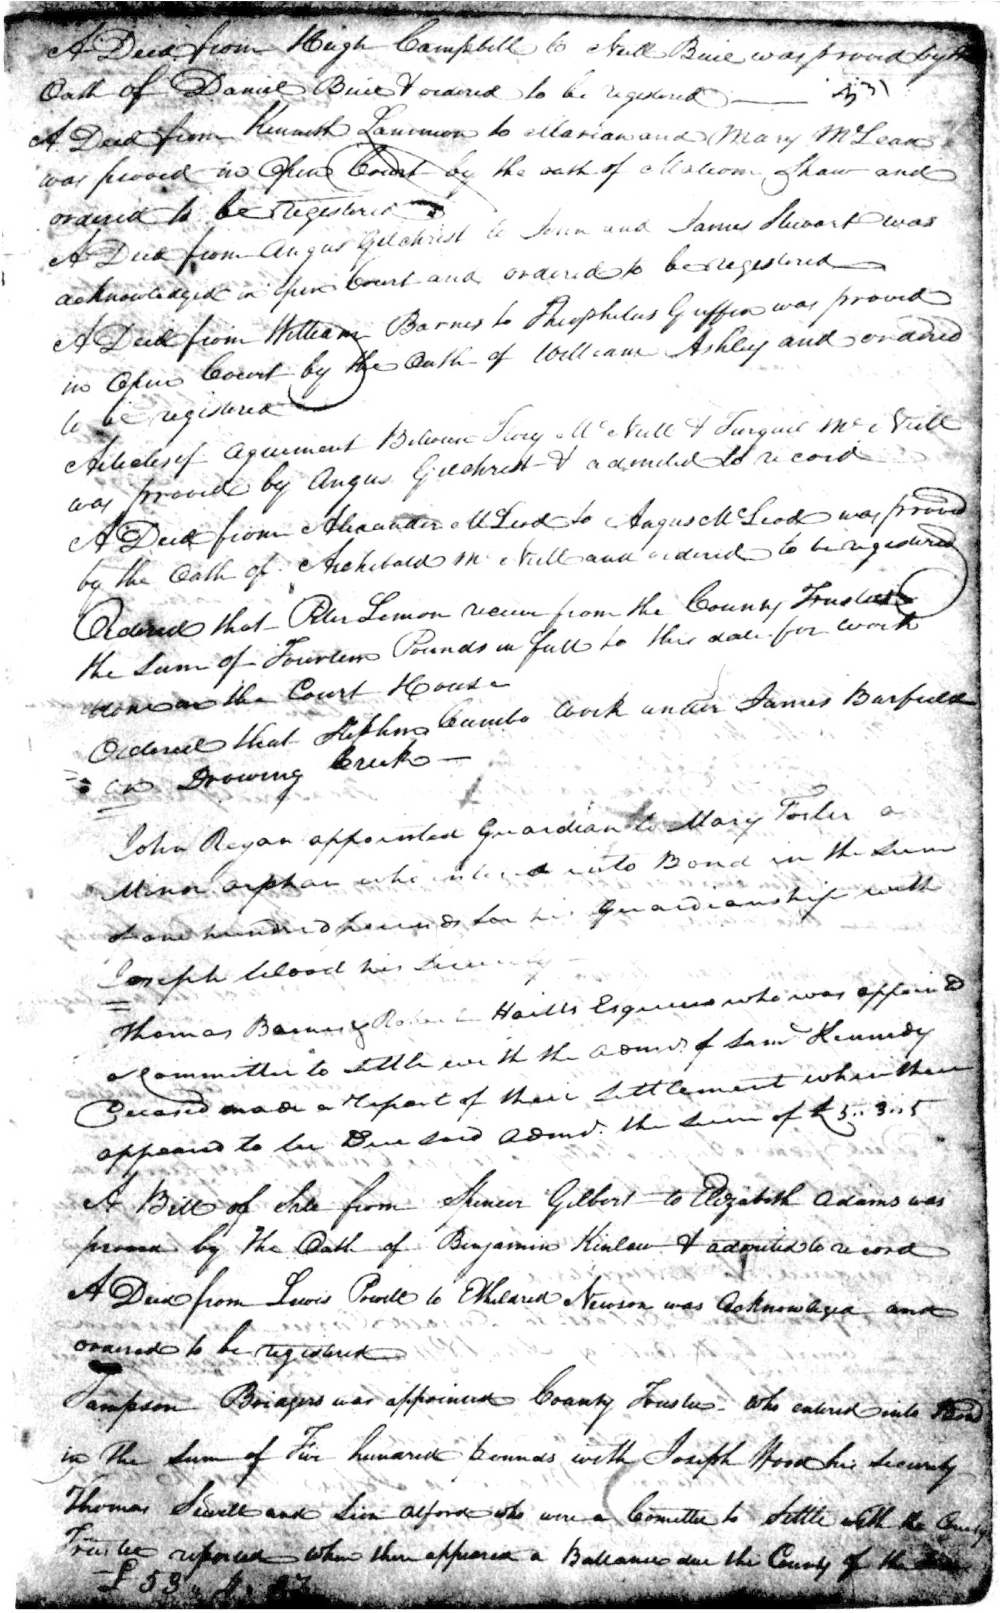 A Deed from Hugh Campbell to Neill Buie was proved by the
Oath of Daniel Buie & ordered to be registered
A Deed from Kenneth to Marian and Mary McLean
was proved in Open Court by the oath of Malcom Shaw and
ordered to be registered
A Deed from Angus Gilchrist to John and James Stewart was
acknowledged in open Court and ordered to be registered
A Deed from William Barnes to Theophilus Guffin was proved
in Open Court by the Oath of William Ashley and ordered
to be registered
Articles of Agreement Between McNeill & Turquil McNeill
was proved by Angus Gilchrist & admited to record
A Deed from Alexander McLeod to Angus McLeod was proved
by the Oath of Archibald McNeill and ordered to be registered
Ordered that Peter Lemon receive from the County Trustee
the Sum of Fourteen Pounds in full to this date for work
done on the Court House
Ordered that Stephen Cumbo work under James Barfield
on Drowing Creek
John Regan appointed Guardian to Mary Foster a
Minor orphan who entered into Bond in the Sum
of one hundred pounds for his Guardianship with
Joseph Wood his Security
Thomas Barnes & Robert Hails Esquires who was appointed
a Committee to settle with the Admr. of Saml Kennedy
Deceased made a Report of their Settlement when there
appeared to be Due said Admr. the Sum of £5..3..5
A Bill of Sale from Spencer Gilbert to Elizabeth Adams was
proved by the Oath of Benjamin Kinlaw & admited to record
A Deed from Lewis Powell to Etheldred Newsom was Acknowleged and
ordered to be registered
Sampson Bridgers was appointed County Trustee who entered into Bond
in the Sum of Five hundred pounds with Joseph Wood his Security
Thomas Sewell and Sion Alford who were a Comittee to Settle with the County
Trustee reported when there appeared a Ballance due the County of the
£53